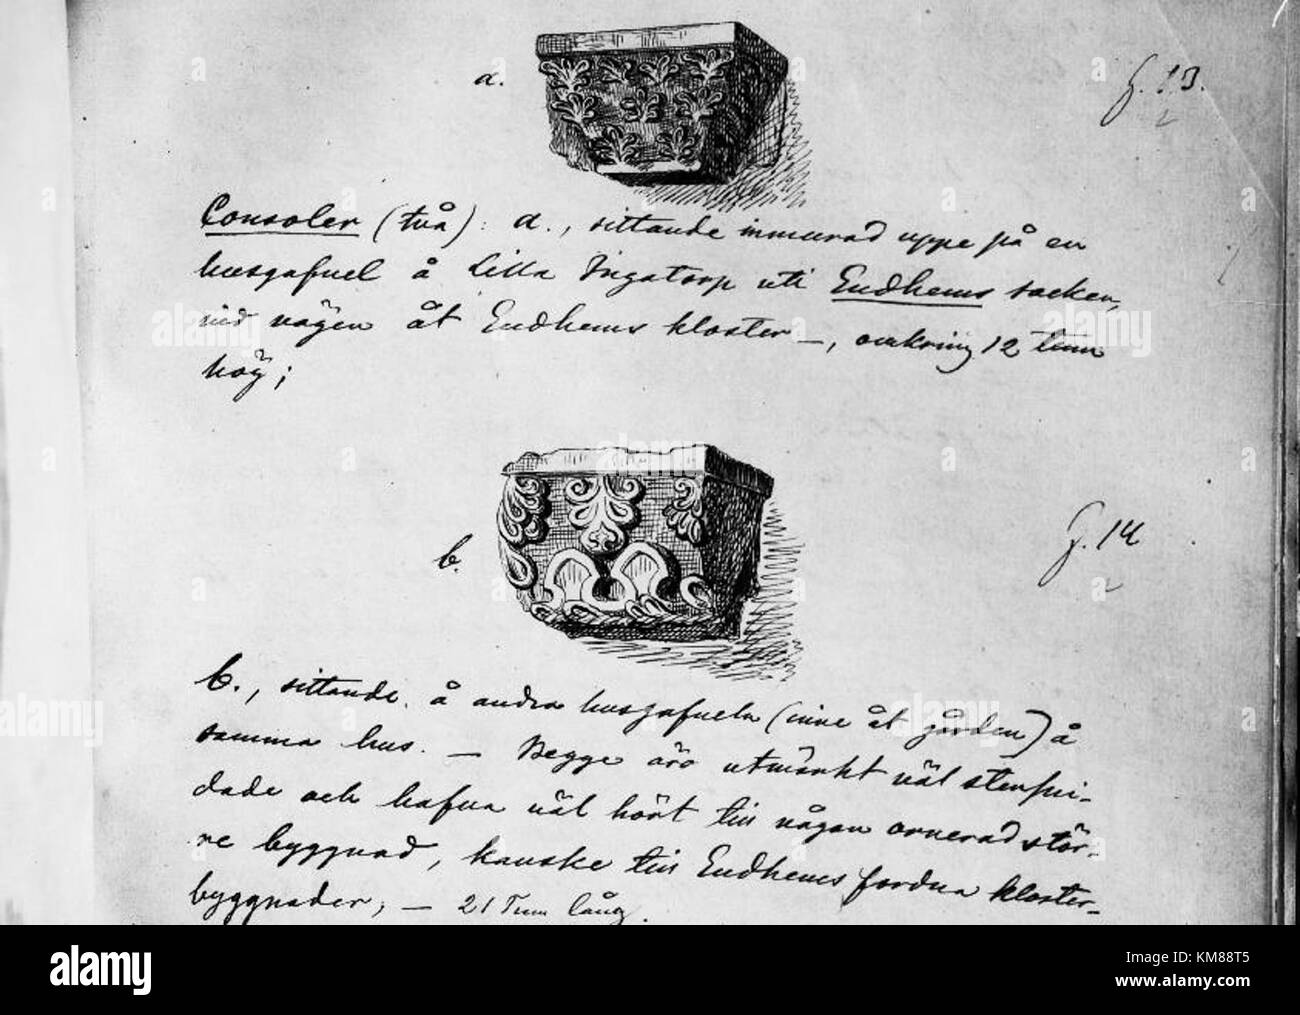 a.
g. 13.
2
Consoler (två): a., sittande inmurad uppe på en
husgafvel å Lilla Ingatorp uti Endhems socken,
vid vägen åt Endhems kloster —, omkring 12 tum
hög;
b.
g. 14
2
b., sittande å andra husgafveln (inne åt gården) å
samma hus. — Begge äro utmärkt väl stenhui-
dade och hafva väl hört till någon ornerad stör-
re byggnad, kanske till Endhems fordna kloster-
byggnader; — 21 Tum lång.
alamy
Image ID: KM88T5
www.alamy.com